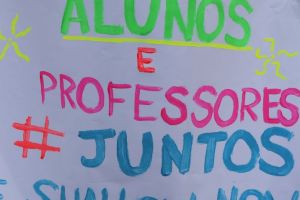 ALUNOS
E
PROFESSORES
# JUNTOS